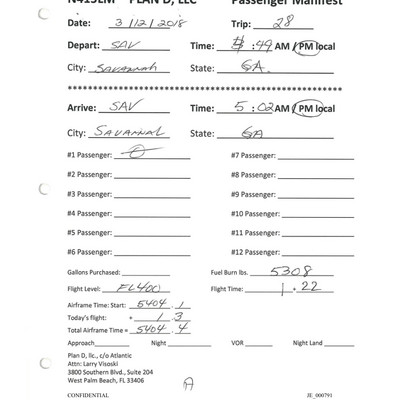 N415LM PLAN D, LLC Passenger Manifest
Date: 3/12/2018 Trip: 28
Depart: SAV Time: :49 AM / PM local
City: Savannah State: GA.
Arrive: SAV Time: 5:02 AM / PM local
City: Savannah State: GA
#1 Passenger: #7 Passenger:
#2 Passenger: #8 Passenger:
#3 Passenger: #9 Passenger:
#4 Passenger: #10 Passenger:
#5 Passenger: #11 Passenger:
#6 Passenger: #12 Passenger:
Gallons Purchased: Fuel Burn lbs. 5308
Flight Level: FL400 Flight Time: 1.22
Airframe Time: Start: 5404.1
Today's flight: + 1.3
Total Airframe Time = 5404.4
Approach Night VOR Night Land
Plan D, llc., c/o Atlantic
Attn: Larry Visoski
3800 Southern Blvd., Suite 204
West Palm Beach, FL 33406
A
CONFIDENTIAL JE_000791